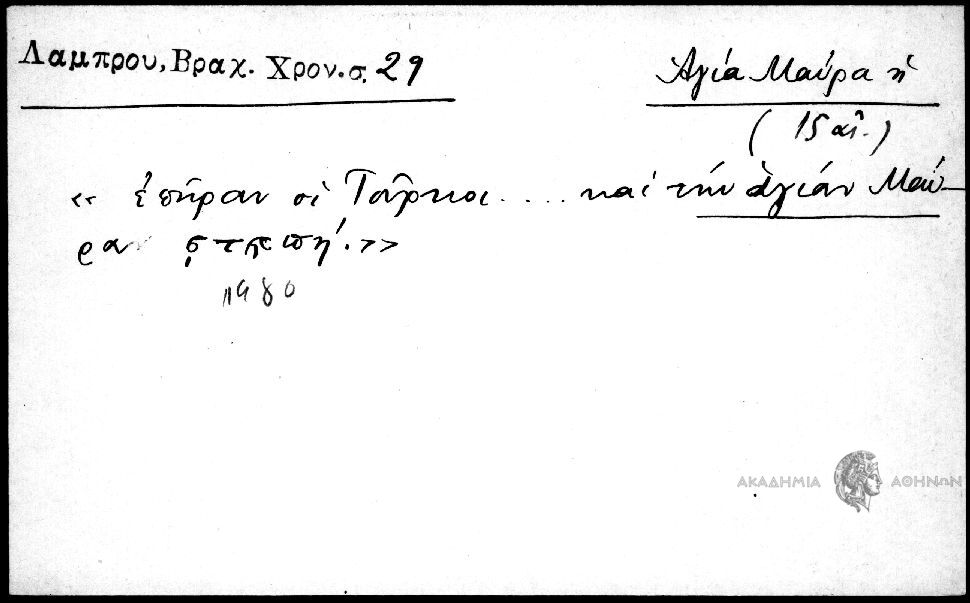 Λαμπρου, Βραχ. Χρον. σ. 29
Ἁγία Μαύρα ἡ
(15 αἰ.)
« ἐπῆραν οἱ Τοῦρκοι .... καὶ τὴν ἁγιάν Μαύ-
ραν
ΑΚΑΔΗΜΙΑ ΑΘΗΝΩΝ